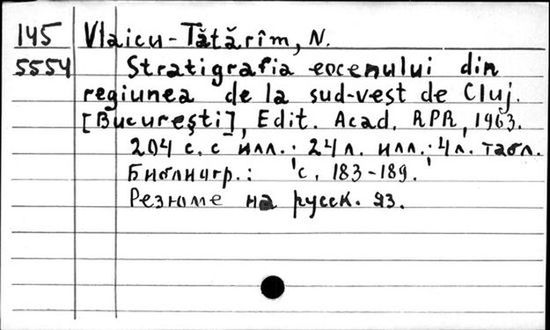 145 Vlaicu-Tătărîm, N.
5554 Stratigrafia eocenului din
regiunea de la sud-vest de Cluj.
[Bucureşti], Edit. Acad. RPR, 1963.
204 с. с илл.; 24 л. илл.; 4 л. табл.
Библиогр.: с. 183-189.
Резюме на русск. яз.